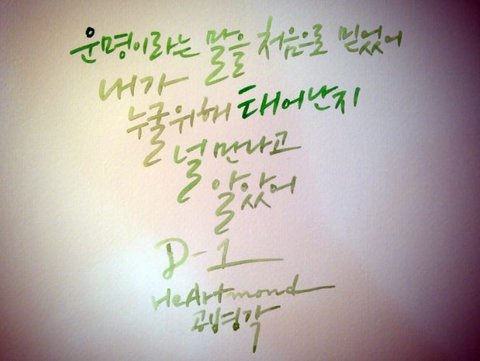 운명이라는 말을 처음으로 믿었어
내가
누굴위해 태어난지
널 만나고
알았어
D-1
HeArtmond
공병각